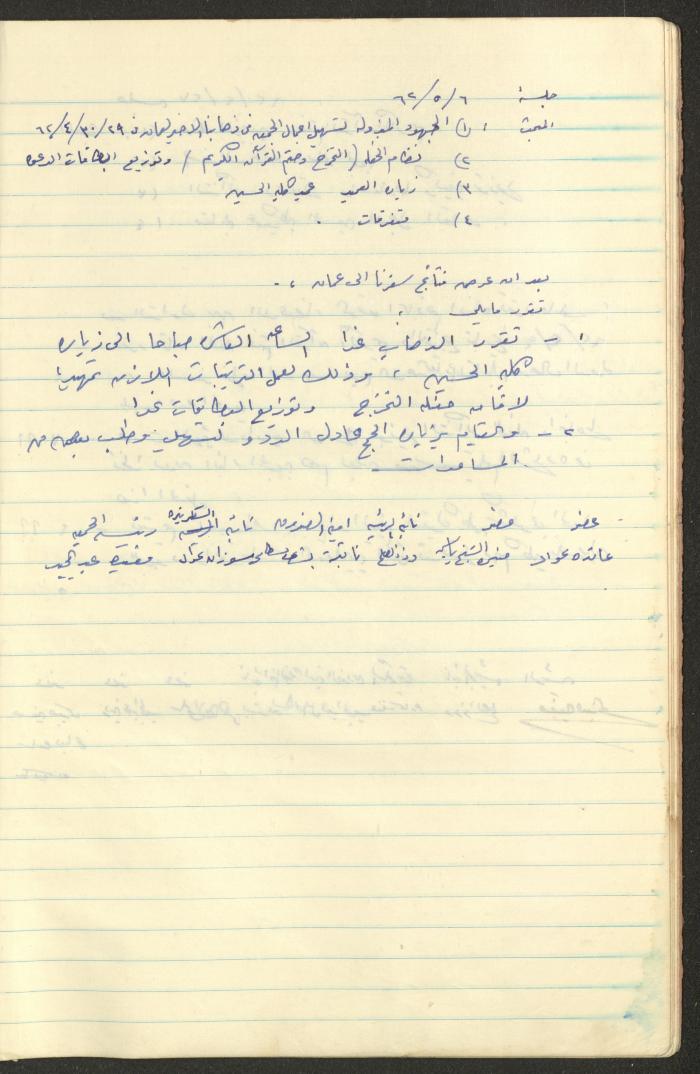 جلسة ٦/٥/٦٢
البحث : ١) الجهود المبذولة لتسهيل اعمال الجمعية في ذهابنا الاخير لعمان في ٢٩/٣٠/٤/٦٢
٢) نظام الحفلة (التخرج وختم القرآن الكريم) وتوزيع البطاقات الدعوة
٣) زيارة العميد عميد كلية الحسين
٤) متفرقات .
بعد ان عرض نتائج سفرنا الى عمان .-
تقرر ما يلي :
١ - تقرر الذهاب غدا الساعة العاشرة صباحا الى زيارة
كلية الحسين ، وذلك لعمل الترتيبات اللازمة تمهيدا
لاقامة حفلة التخرج وتوزيع البطاقات غدا
٢ - والقيام بزيارة الحج عادل لتسهيل وطلب بعض من
المساعدات
عضو عضو نائبة الرئيسة امينة الصندوق نائبة السكرتيرة رئيسة الجمعية
عائدة عواد وسوزان عواد مفيدة عبد المجيد